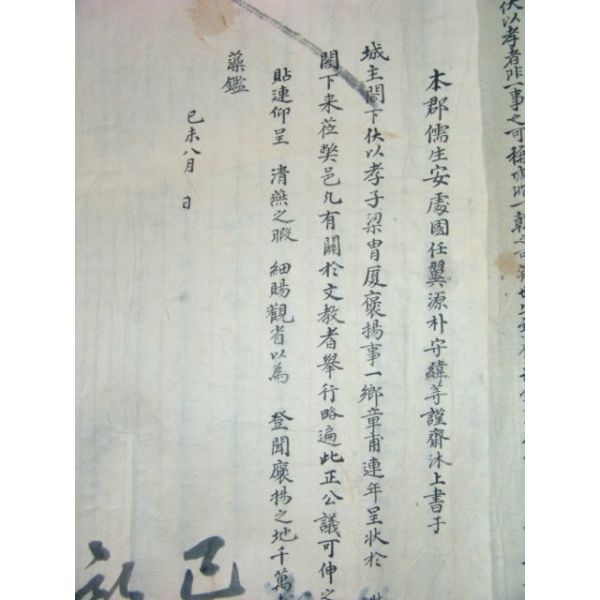 伏以孝者非一事之可稱
本郡儒生安處國任翼源朴守緯等謹齋沐上書于
城主閤下伏以孝子梁胄厦褒揚事一鄉章甫連年呈狀於
閤下来莅弊邑凡有關於文教者舉行略遍此正公議可伸之
貼連仰呈 清燕之暇 細賜觀省以為 登聞褒揚之地千萬
藻鑑
己未八月 日